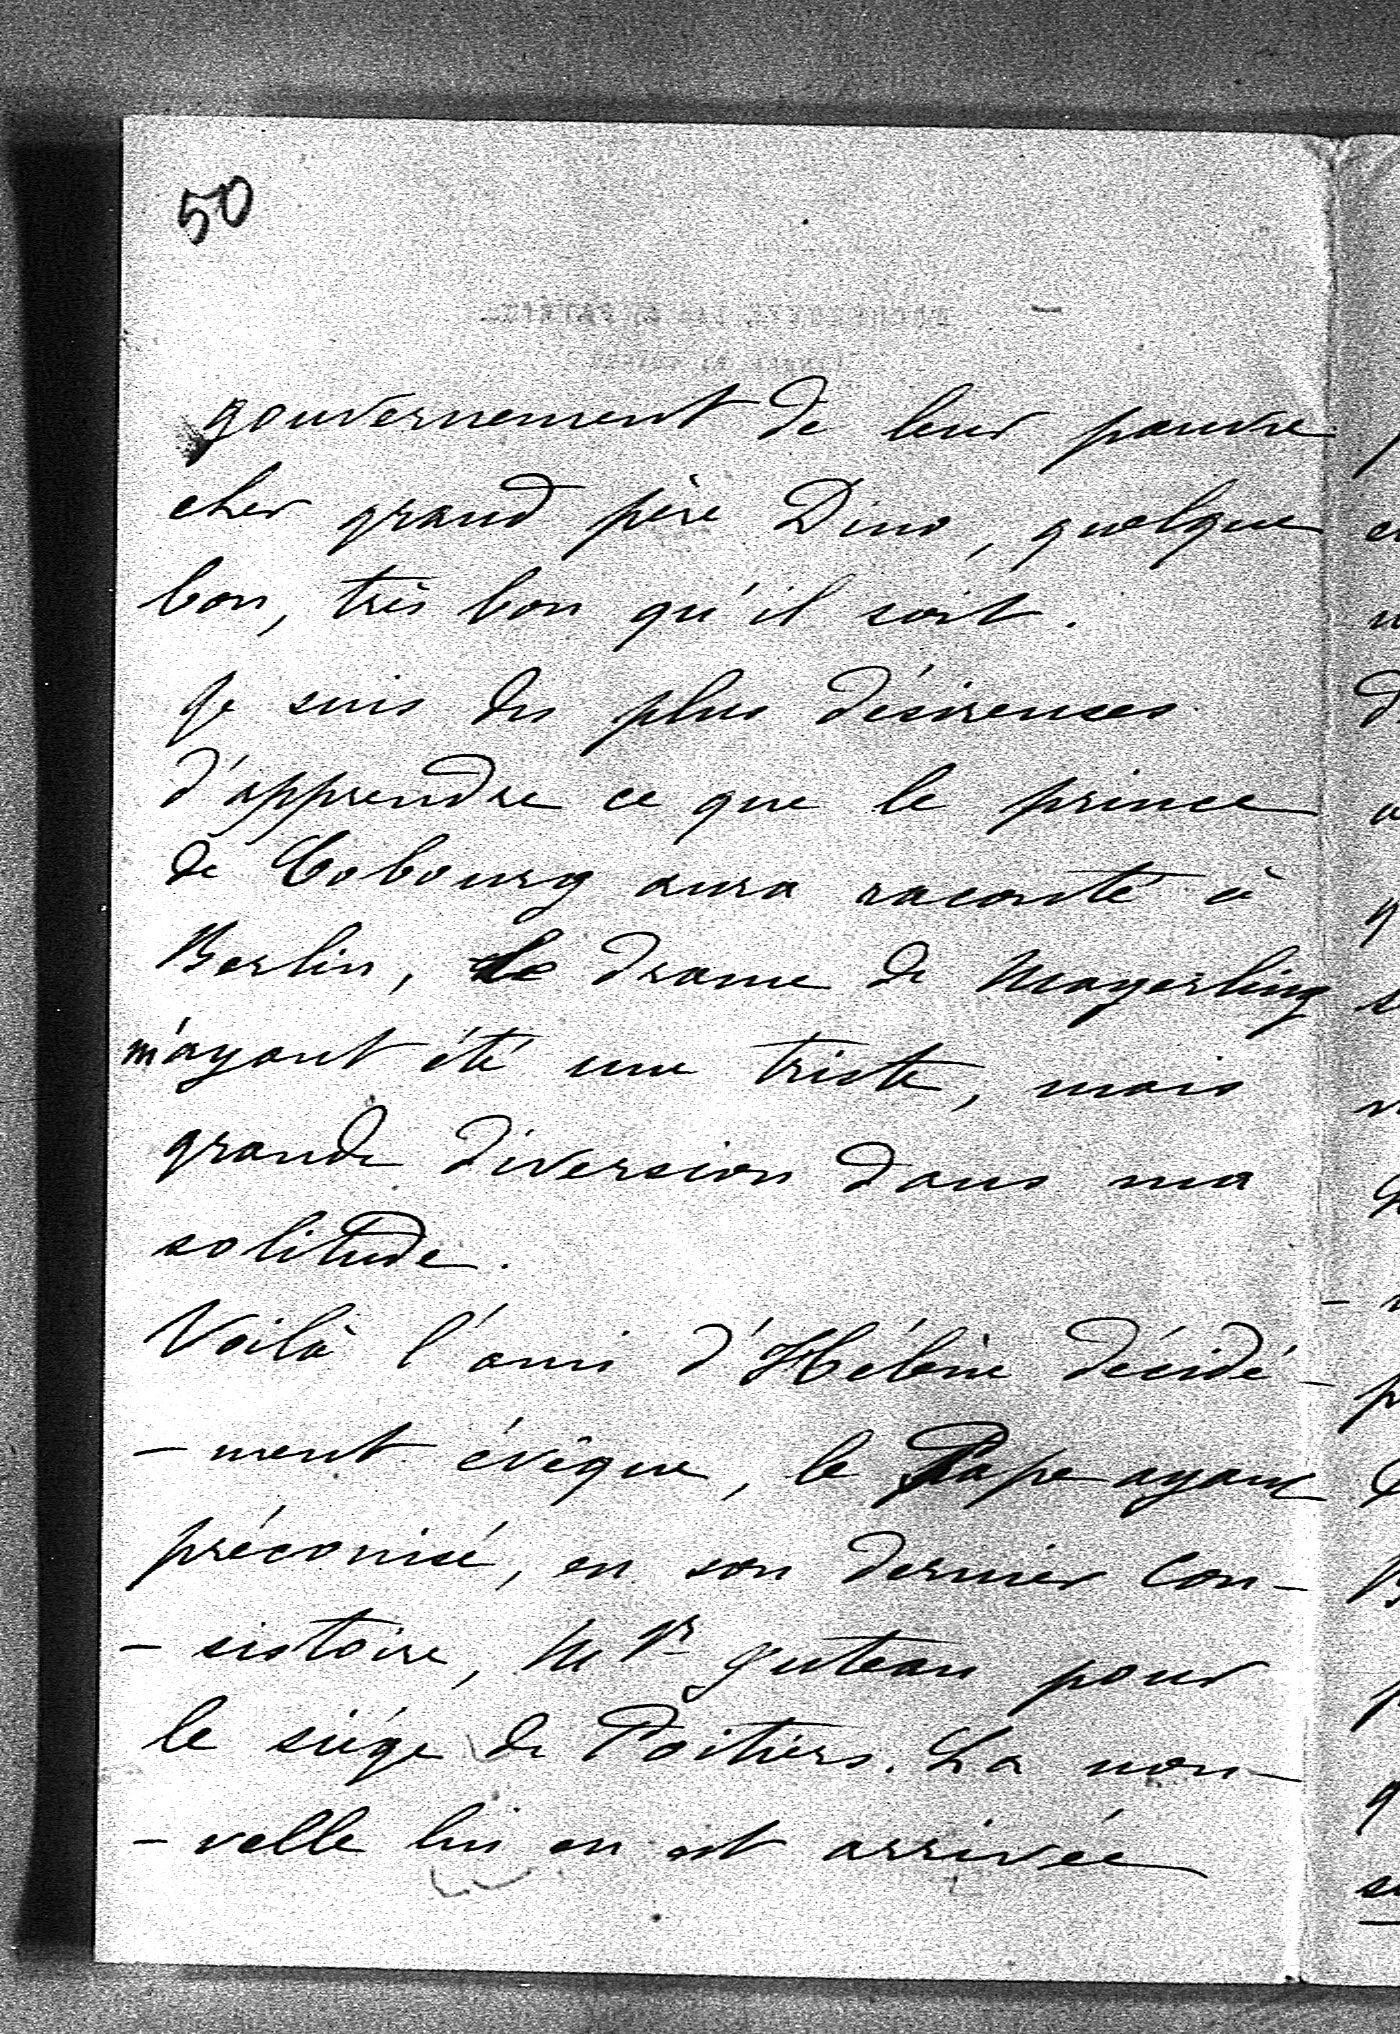 50
gouvernement de leur pauvre
cher grand père Dino, quelque
bon, très bon qu'il soit.
Je suis des plus désireuses
d'apprendre ce que le prince
de Cobourg aura raconté à
Berlin, le drame de Mayerling
m'ayant été une triste, mais
grande diversion dans ma
solitude.
Voilà l'ami d'Hélène décidé-
- ment évêque, le Pape ayant
préconisé, en son dernier con-
- sistoire, Mgr Juteau pour
le siége de Poitiers. La nou-
- velle lui en est arrivée